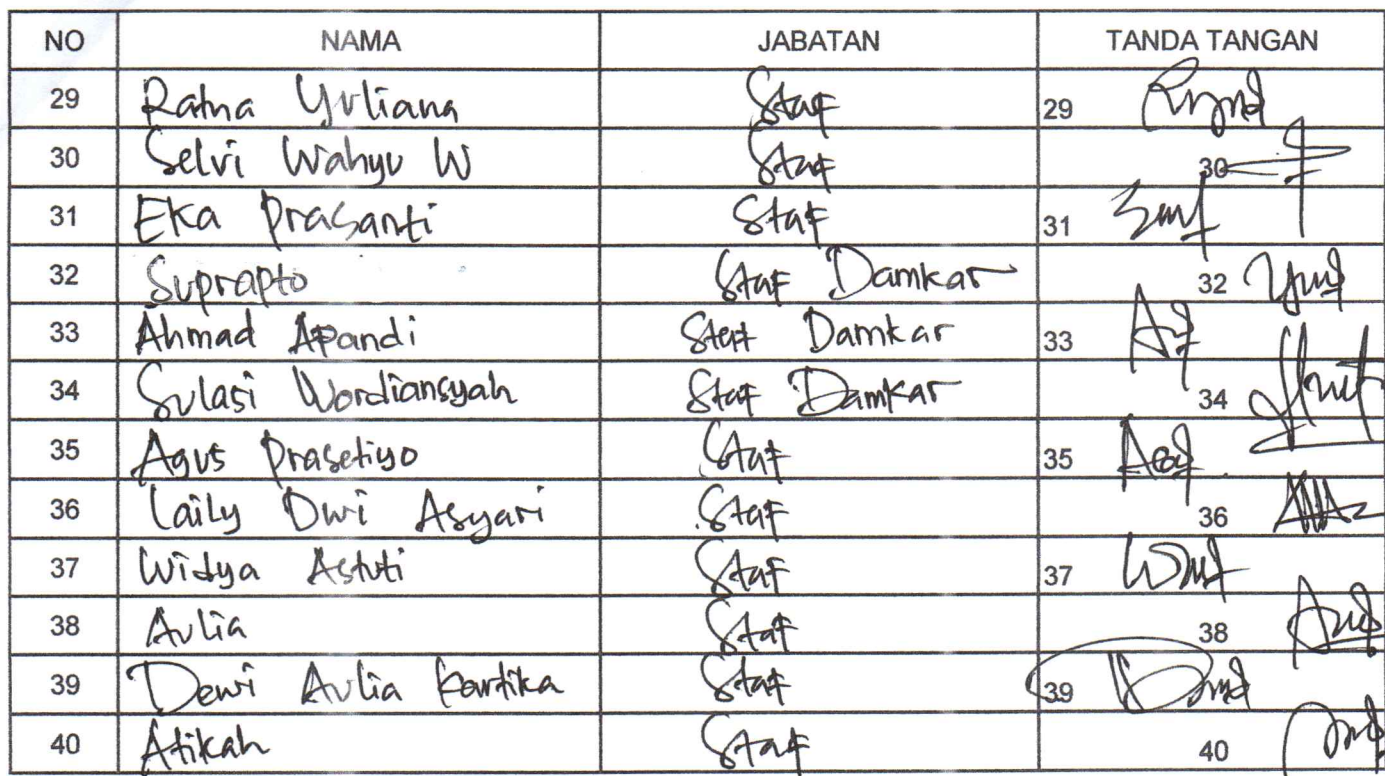 NO NAMA JABATAN TANDA TANGAN
29 Ratna Yuliana Staf 29
30 Selvi Wahyu W Staf 30
31 Eka Prasanti Staf 31
32 Suprapto Staf Damkar 32
33 Ahmad Apandi Staf Damkar 33
34 Sulasi Wordiansyah Staf Damkar 34
35 Agus Prasetiyo Staf 35
36 Laily Dwi Asyari Staf 36
37 Widya Astuti Staf 37
38 Aulia Staf 38
39 Dewi Aulia Kartika Staf 39
40 Atikah Staf 40